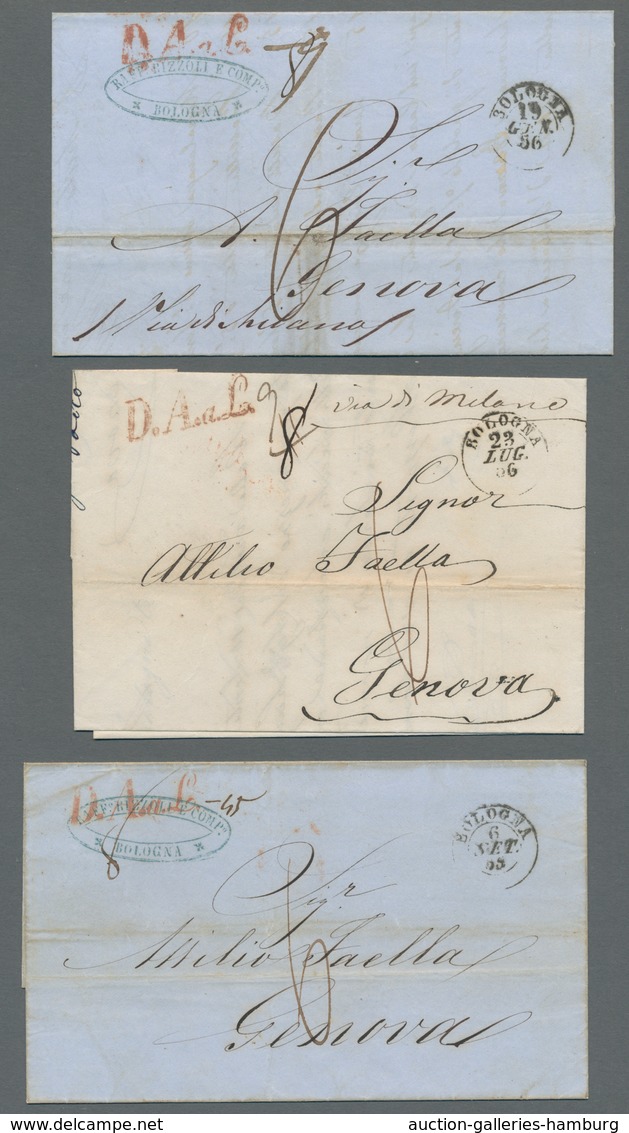 D. A. a L.
RAFF. RIZZOLI E COMP.
BOLOGNA
8
BOLOGNA
19
GEN.
56
Sigr
A. Faella
Genova
Via di Milano
6
D. A. a L.
9
8
via di Milano
BOLOGNA
23
LUG.
56
Signor
Attilio Faella
6
Genova
D. A. a L.
RAFF. RIZZOLI E COMP.
BOLOGNA
8
45
BOLOGNA
6
SET.
Sigr
Attilio Faella
6
Genova
auction-galleries-hamburg